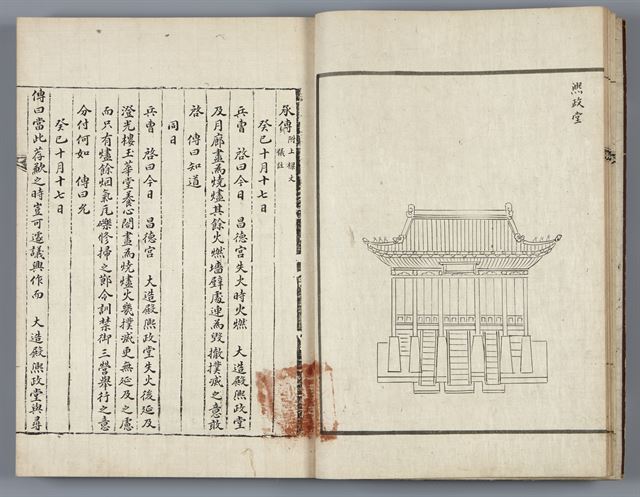 熙政堂
承傳 附上樑文 儀註
癸巳十月十七日
兵曹 啓曰今日 昌德宮失火時火燃 大造殿熙政堂
及月廊盡爲燒燼其餘火燃墻壁處連爲毀撤撲滅之意敢
啓 傳曰知道
同日
兵曹 啓曰今日 昌德宮 大造殿熙政堂失火後延及
澄光樓玉華堂養心閤盡爲燒燼火幾撲滅更無延及之慮
而只有燼餘烟氣瓦礫修掃之節令訓禁御三營擧行之意
分付何如 傳曰允
癸巳十月十七日
傳曰當此荐歉之時豈可遽議興作而 大造殿熙政堂與尋